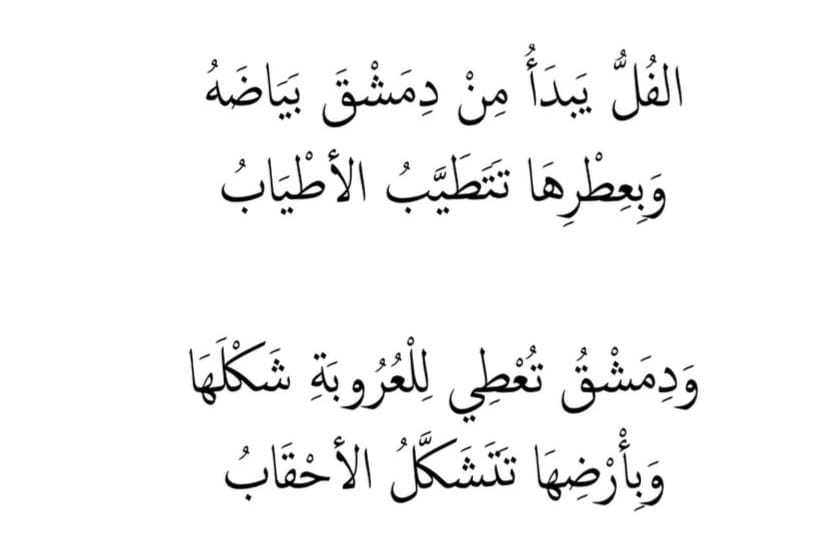 الفُلُّ يَبدَأُ مِنْ دِمَشْقَ بَيَاضَهُ
وَبِعِطْرِهَا تَتَطَيَّبُ الأطْيَابُ
وَدِمَشْقُ تُعْطِي لِلْعُرُوبَةِ شَكْلَهَا
وَبِأْرْضِهَا تَتَشَكَّلُ الأحْقَابُ